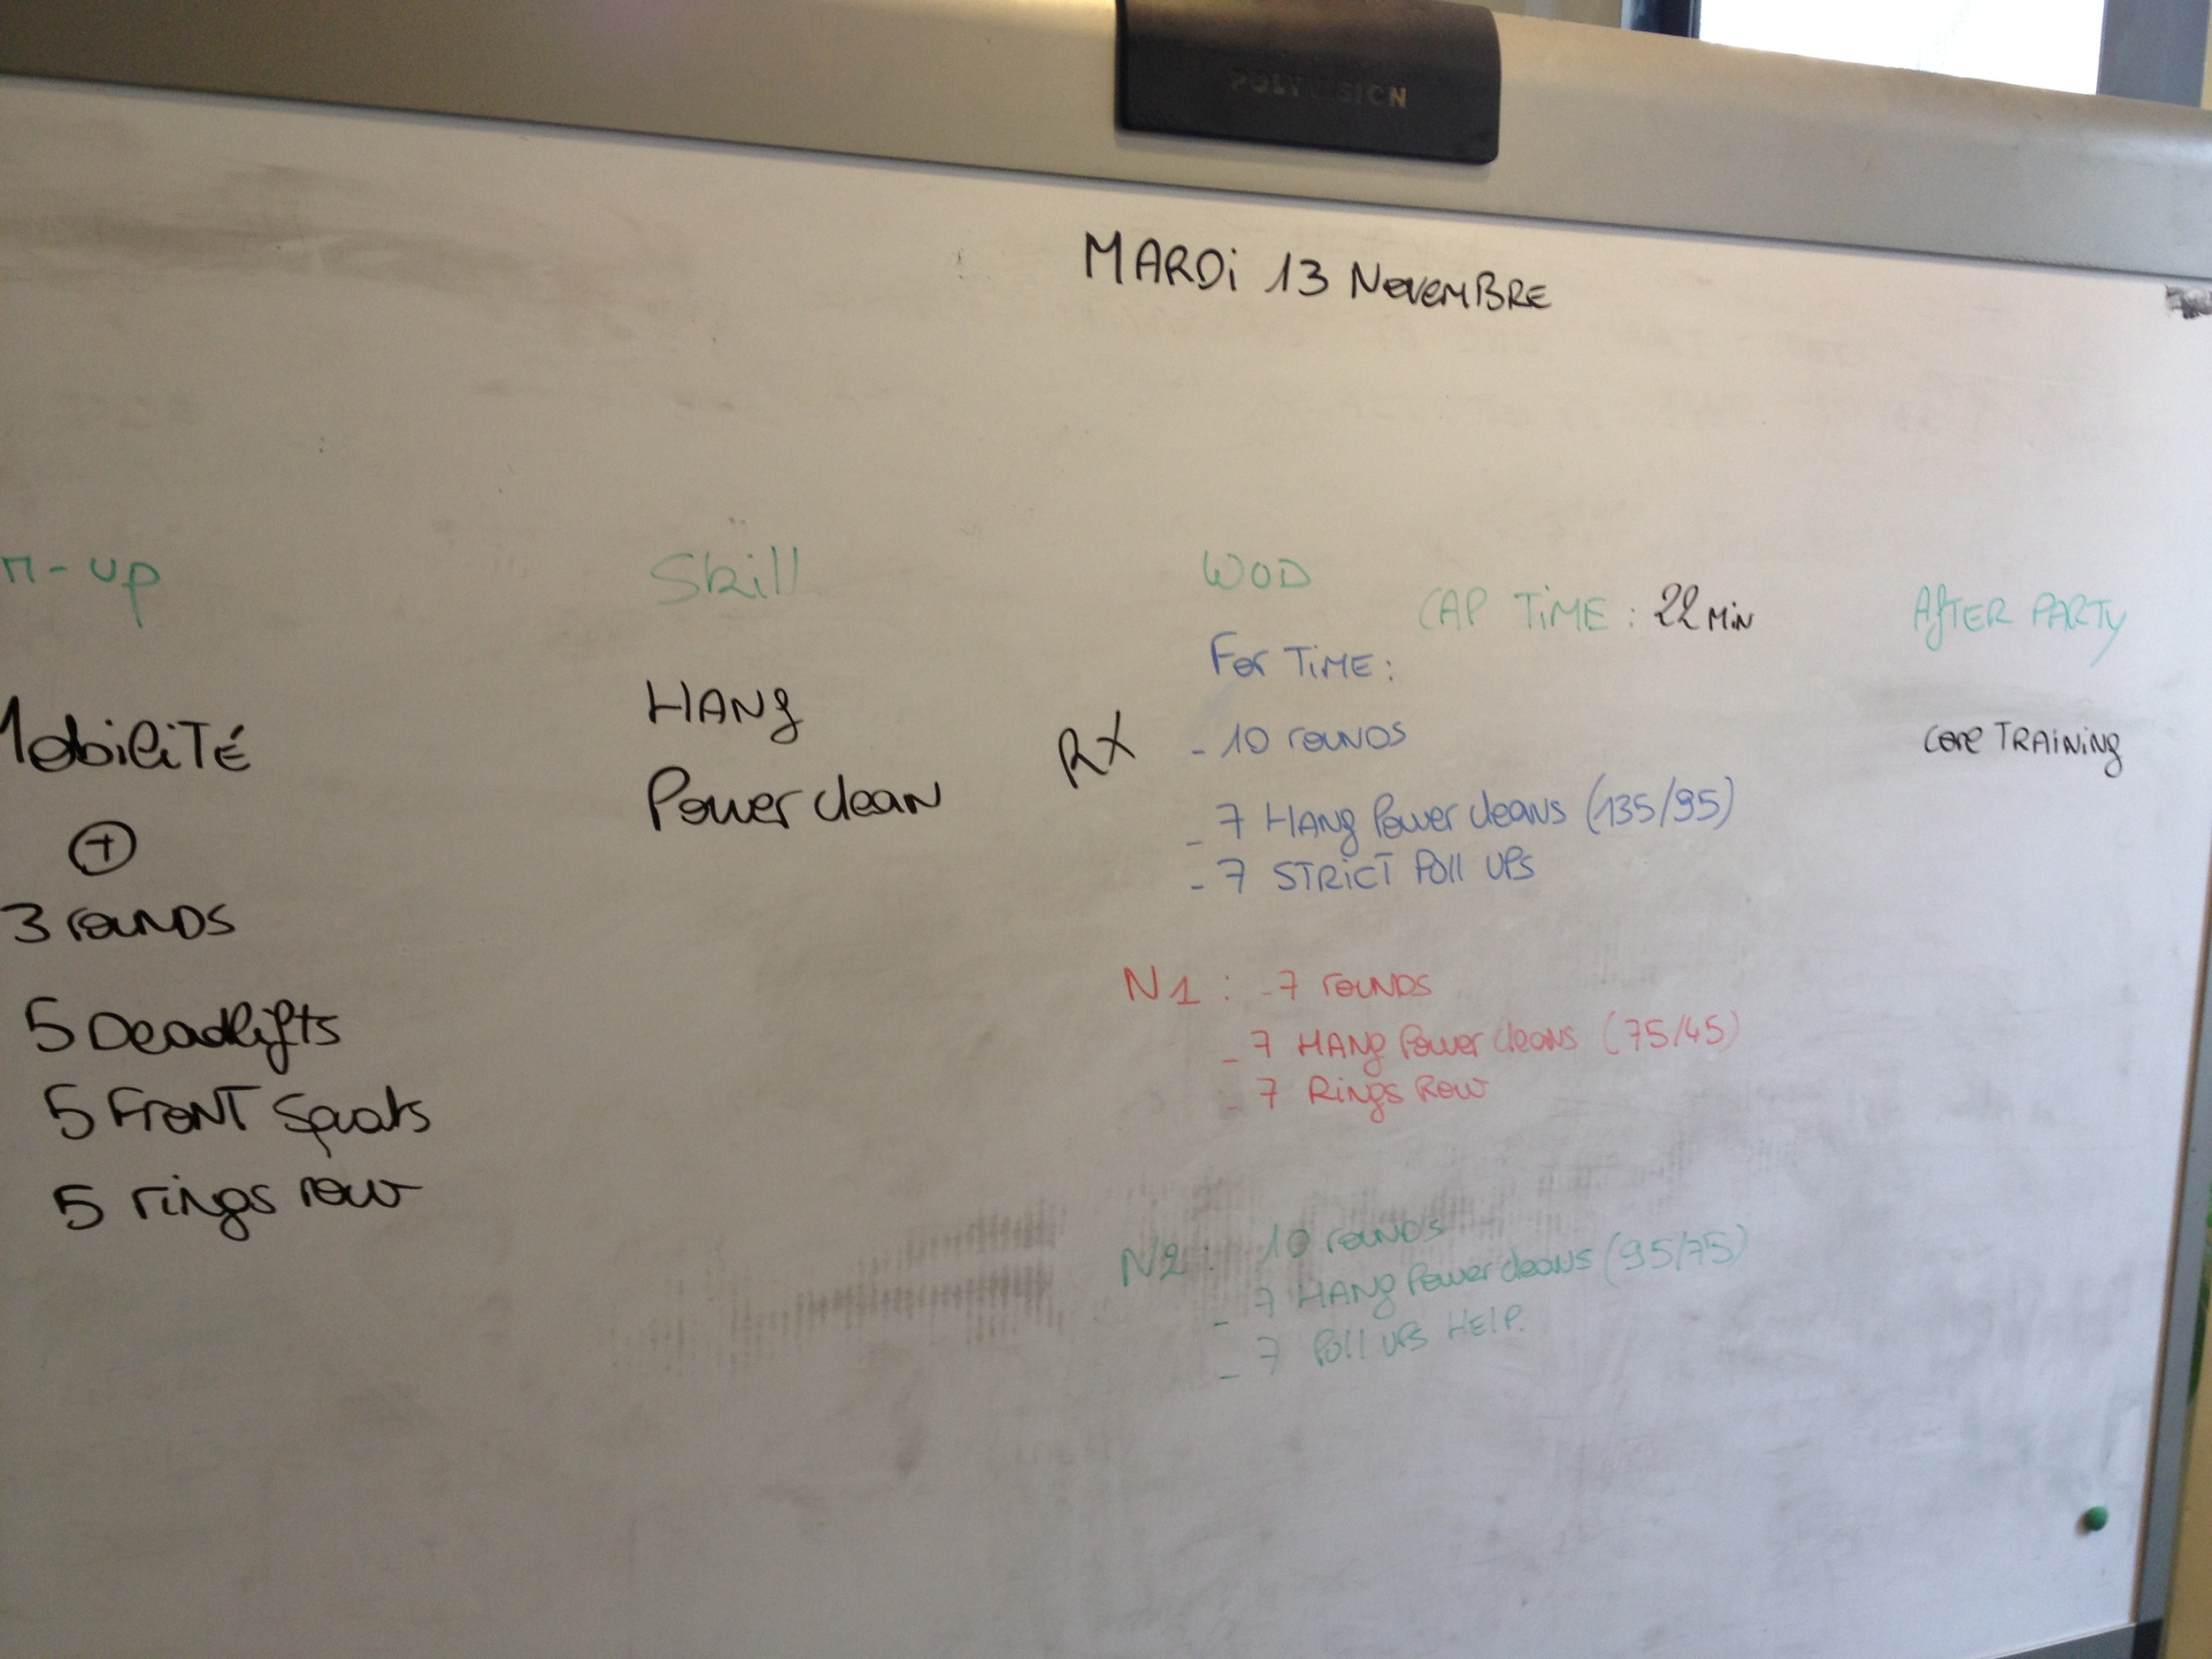 POLYVISION
MARDi 13 NOVEMBRE
m-up
Mobilité
+
3 rounds
5 Deadlifts
5 Front Squats
5 rings row
Skill
HANg
Power clean
WOD
CAP TIME : 22 Min
For TIME :
RX
- 10 rounds
- 7 HANg Power cleans (135/95)
- 7 STRICT Pull UPs
N1 : - 7 rounds
- 7 HANg Power cleans (75/45)
- 7 Rings Row
N2 : 10 rounds
- 7 HANg Power cleans (95/75)
- 7 Pull UPs HELP.
AfTER PARTy
Core TRAINiNg